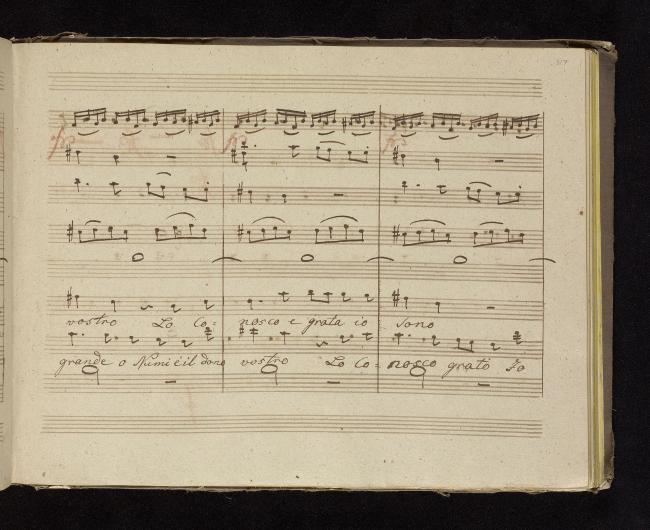 317
vostro Lo Co= nosco e grata io sono
grande o Numi è il dono vostro Lo Co= nosco grato Io